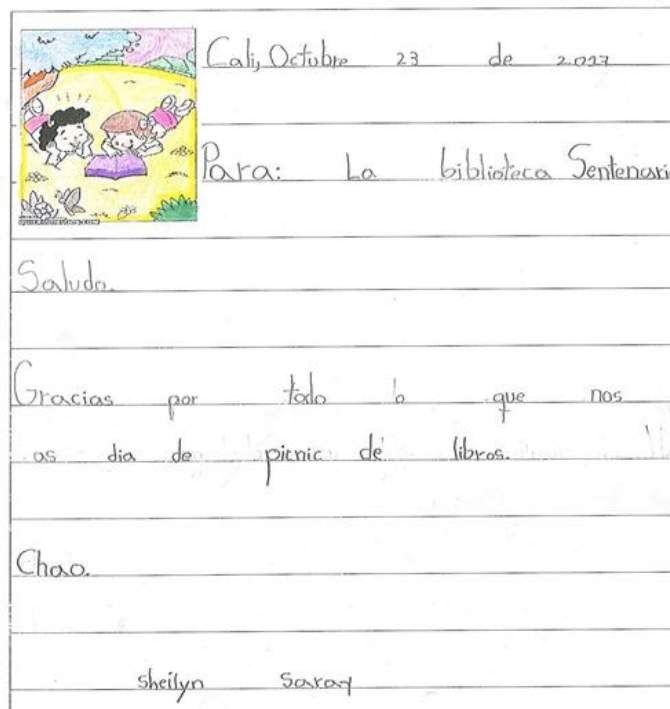 Cali, Octubre 23 de 2017
Para: La biblioteca Sentenari
Saludo.
Gracias por todo lo que nos
as dia de picnic de libros.
Chao.
sheilyn Saray